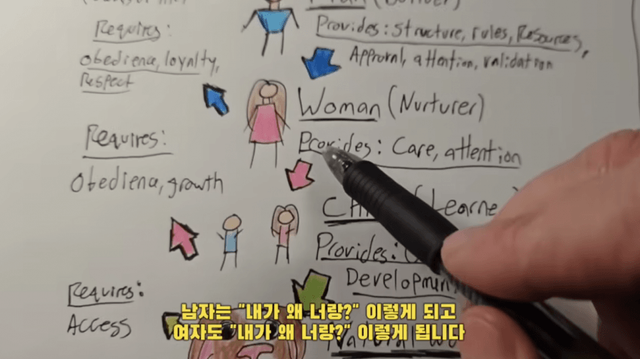 Requires:
obedience, loyalty,
Respect
Provides: structure, rules, Resources,
Approval, attention, validation
Woman (Nurturer)
Provides: Care, attention
Requires:
Obedience, growth
Provides:
Development
Requires:
Access
남자는 "내가 왜 너랑?" 이렇게 되고
여자도 "내가 왜 너랑?" 이렇게 됩니다